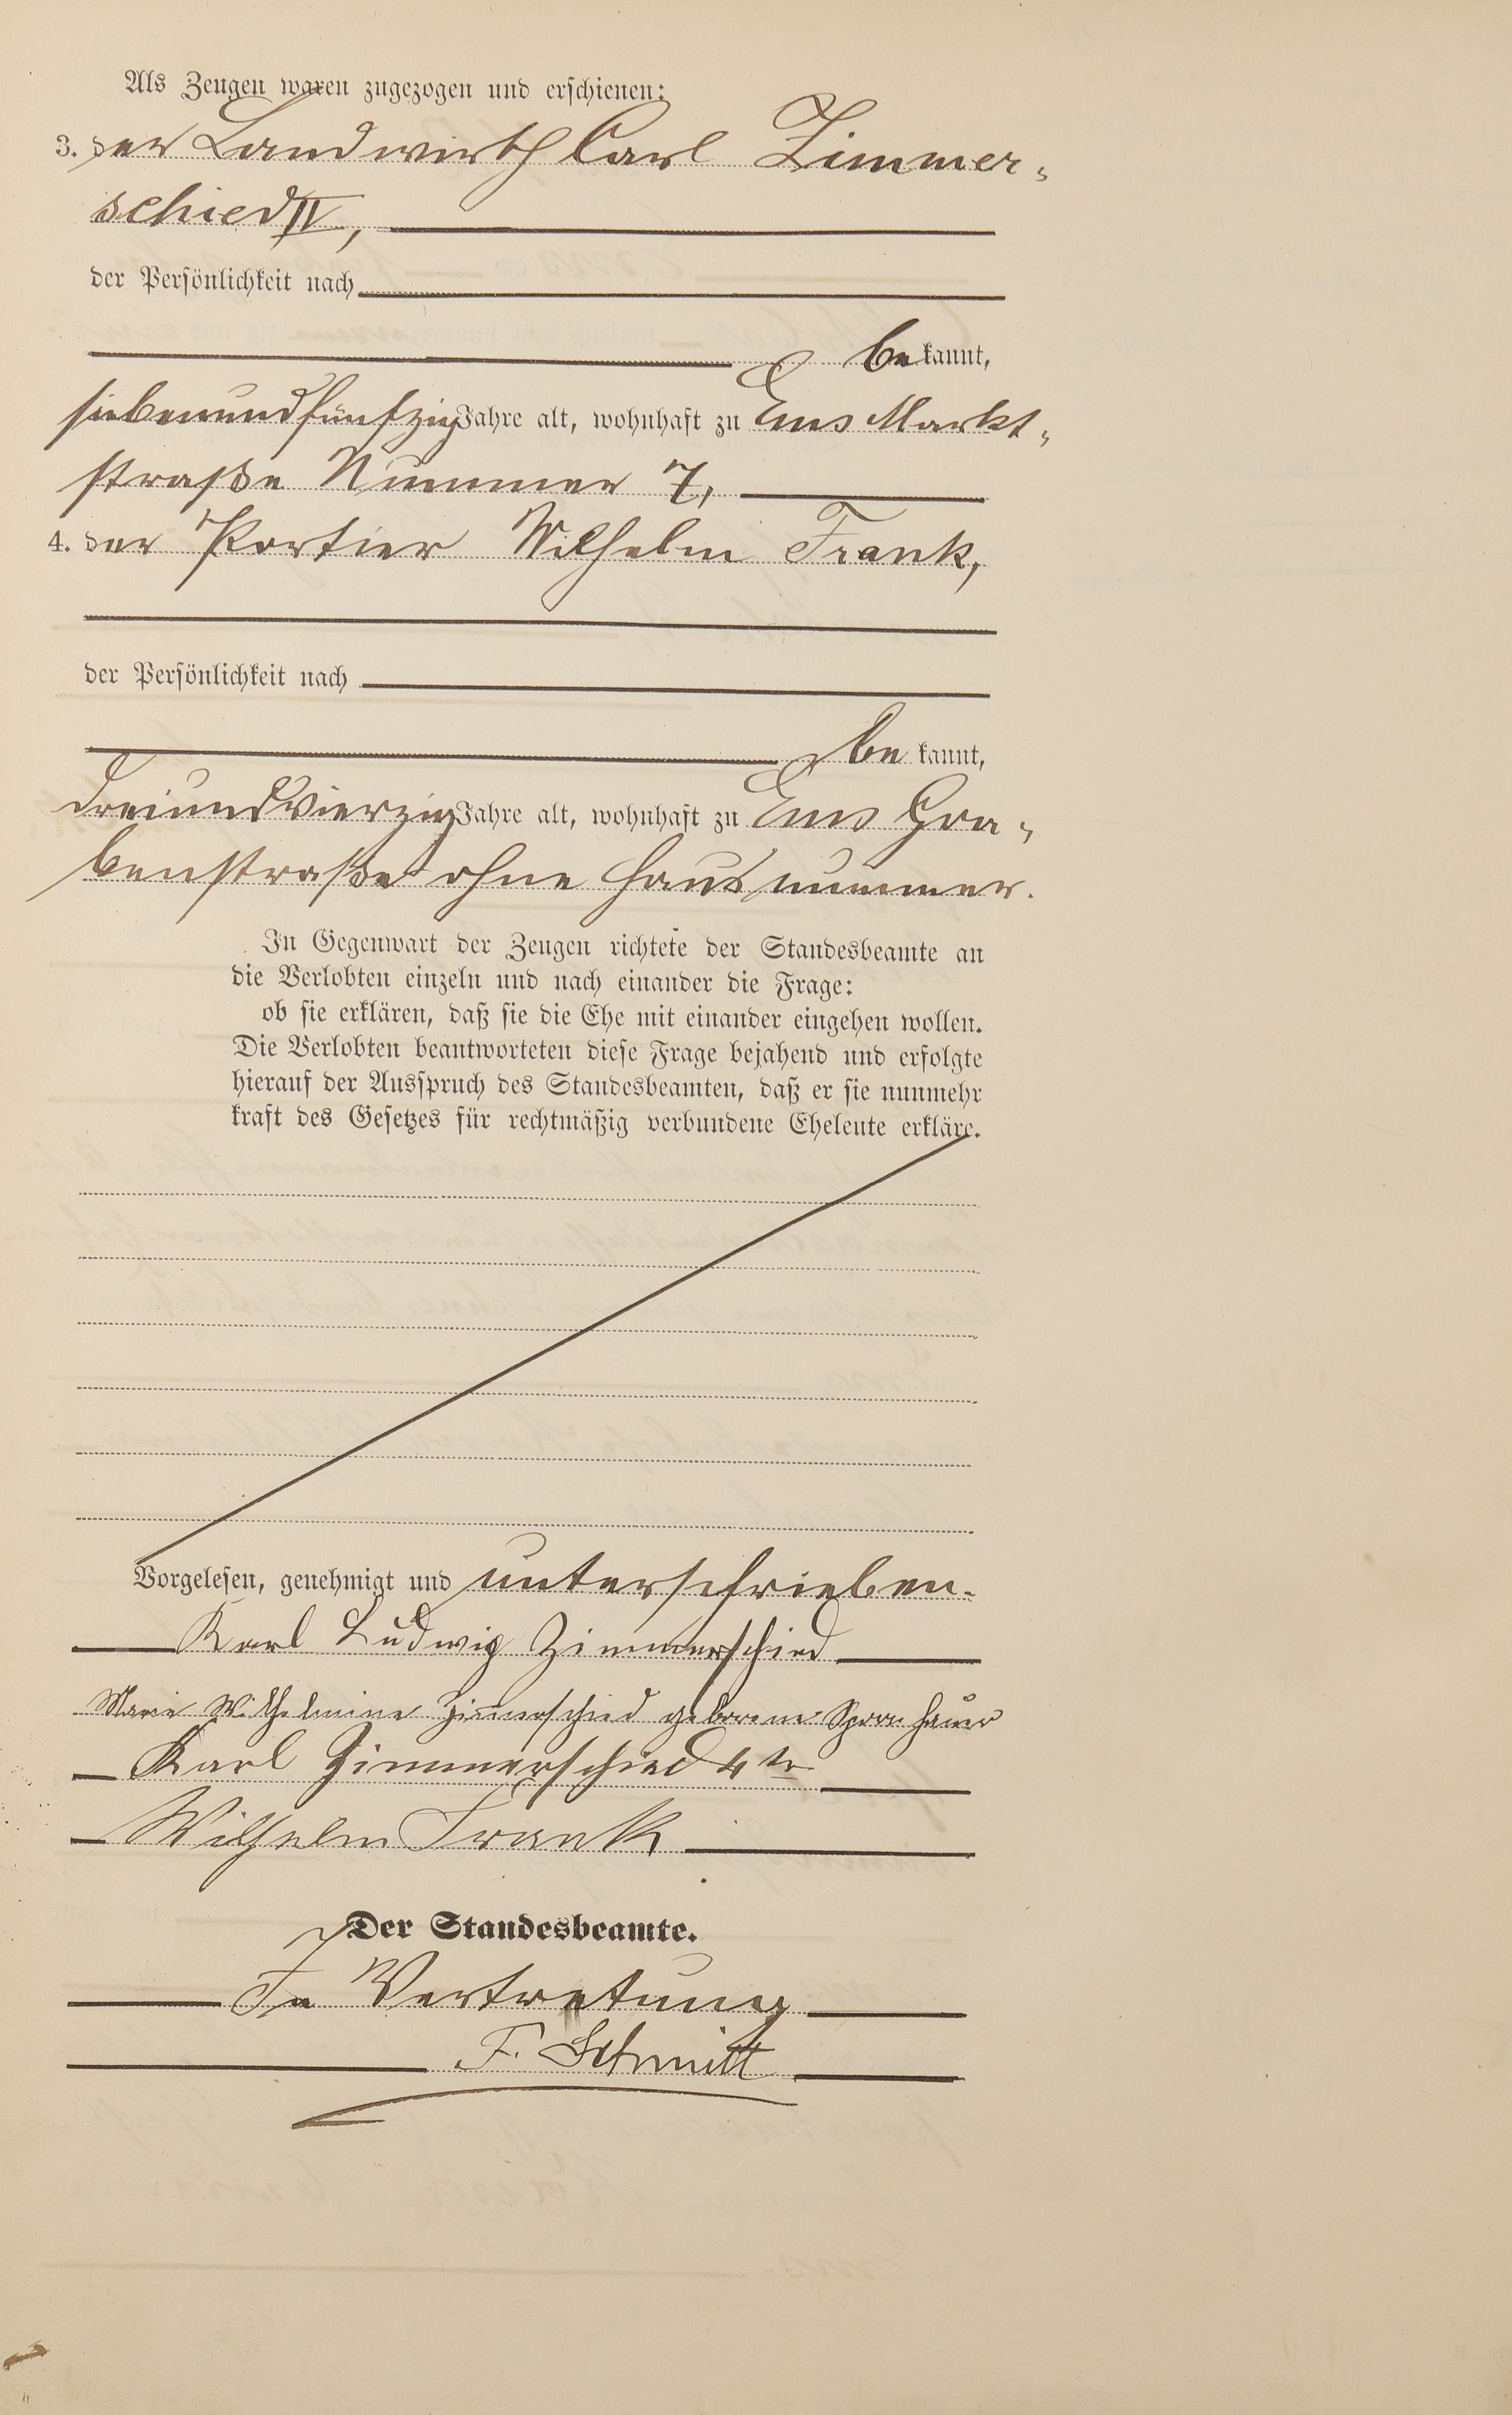 Als Zeugen waren zugezogen und erschienen:
3. der Landwirth Carl Zimmer-
schied IV,
der Persönlichkeit nach
bekannt,
siebenundfünfzig Jahre alt, wohnhaft zu Ems Markt-
straße Nummer 7,
4. der Portier Wilhelm Frank,
der Persönlichkeit nach
bekannt,
dreiundvierzig Jahre alt, wohnhaft zu Ems Gra-
benstraße ohne Hausnummer.
In Gegenwart der Zeugen richtete der Standesbeamte an
die Verlobten einzeln und nach einander die Frage:
ob sie erklären, daß sie die Ehe mit einander eingehen wollen.
Die Verlobten beantworteten diese Frage bejahend und erfolgte
hierauf der Ausspruch des Standesbeamten, daß er sie nunmehr
kraft des Gesetzes für rechtmäßig verbundene Eheleute erkläre.
Vorgelesen, genehmigt und unterschrieben.
Karl Ludwig Zimmerschied
Marie Wilhelmine Zimmerschied geborene
Karl Zimmerschied 4te
Wilhelm Frank
Der Standesbeamte.
In Vertretung
F. Schmitt